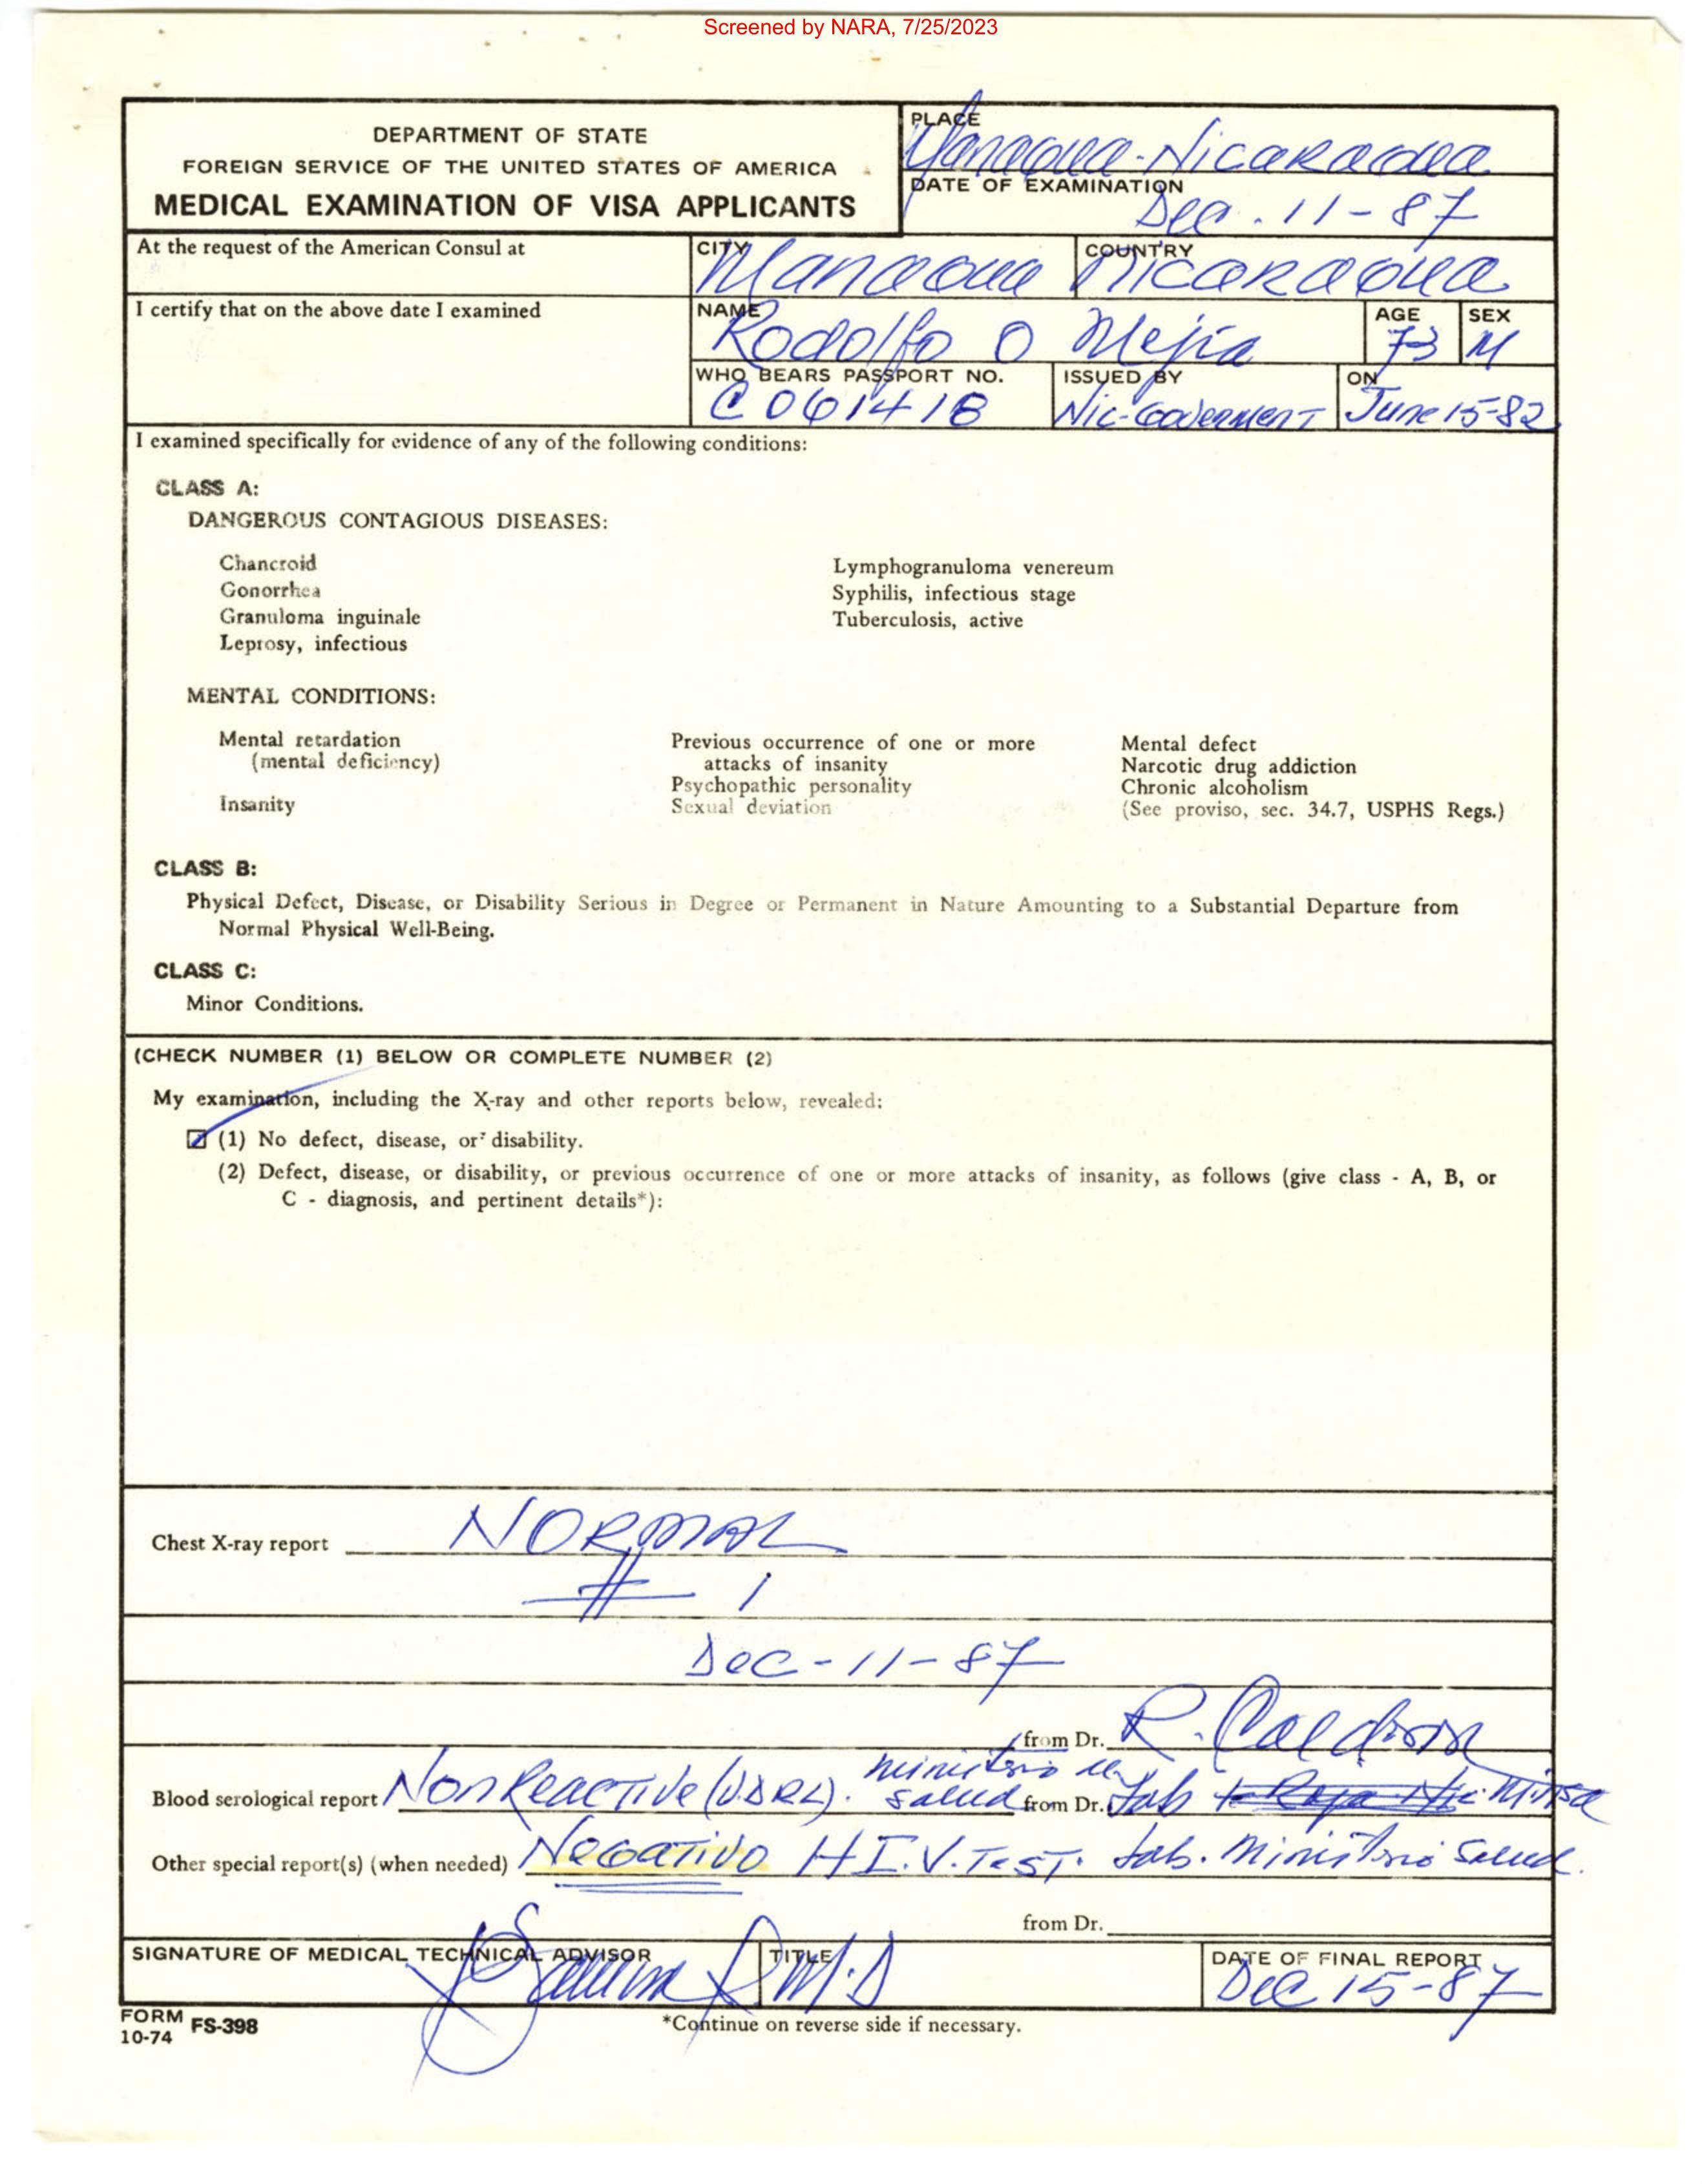 Screened by NARA, 7/25/2023
DEPARTMENT OF STATE
FOREIGN SERVICE OF THE UNITED STATES OF AMERICA
MEDICAL EXAMINATION OF VISA APPLICANTS
PLACE
Managua-Nicaragua
DATE OF EXAMINATION
Dec. 11-87
At the request of the American Consul at
CITY
Managua
COUNTRY
Nicaragua
I certify that on the above date I examined
NAME
Rodolfo O Mejia
AGE
73
SEX
M
WHO BEARS PASSPORT NO.
C061418
ISSUED BY
Nic-Goverment
ON
June 15-82
I examined specifically for evidence of any of the following conditions:
CLASS A:
DANGEROUS CONTAGIOUS DISEASES:
Chancroid
Gonorrhea
Granuloma inguinale
Leprosy, infectious
Lymphogranuloma venereum
Syphilis, infectious stage
Tuberculosis, active
MENTAL CONDITIONS:
Mental retardation
(mental deficiency)
Insanity
Previous occurrence of one or more
attacks of insanity
Psychopathic personality
Sexual deviation
Mental defect
Narcotic drug addiction
Chronic alcoholism
(See proviso, sec. 34.7, USPHS Regs.)
CLASS B:
Physical Defect, Disease, or Disability Serious in Degree or Permanent in Nature Amounting to a Substantial Departure from
Normal Physical Well-Being.
CLASS C:
Minor Conditions.
(CHECK NUMBER (1) BELOW OR COMPLETE NUMBER (2)
My examination, including the X-ray and other reports below, revealed:
(1) No defect, disease, or disability.
(2) Defect, disease, or disability, or previous occurrence of one or more attacks of insanity, as follows (give class - A, B, or
C - diagnosis, and pertinent details*):
Chest X-ray report NORMAL
# 1
Dec-11-87
from Dr. R. Calderon
Blood serological report NonReactive (V.D.R.L). Ministerio de Salud from Dr. Lab Minsa
Other special report(s) (when needed) Negativo H.I.V. Test. Lab. Ministerio Salud.
from Dr.
SIGNATURE OF MEDICAL TECHNICAL ADVISOR
TITLE
M.D
DATE OF FINAL REPORT
Dec 15-87
FORM
10-74 FS-398
*Continue on reverse side if necessary.